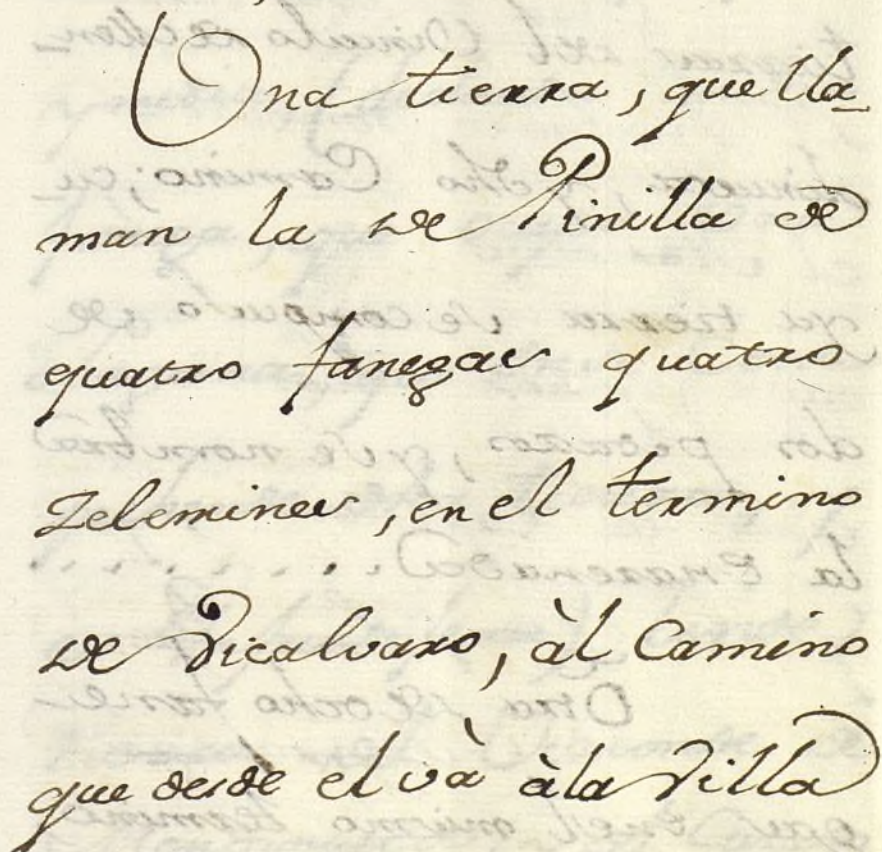 Una tierra, que lla-
man la de Pinilla de
quatro fanegas quatro
Zelemines, en el termino
de Vicalvaro, àl Camino
que desde el và àla Villa